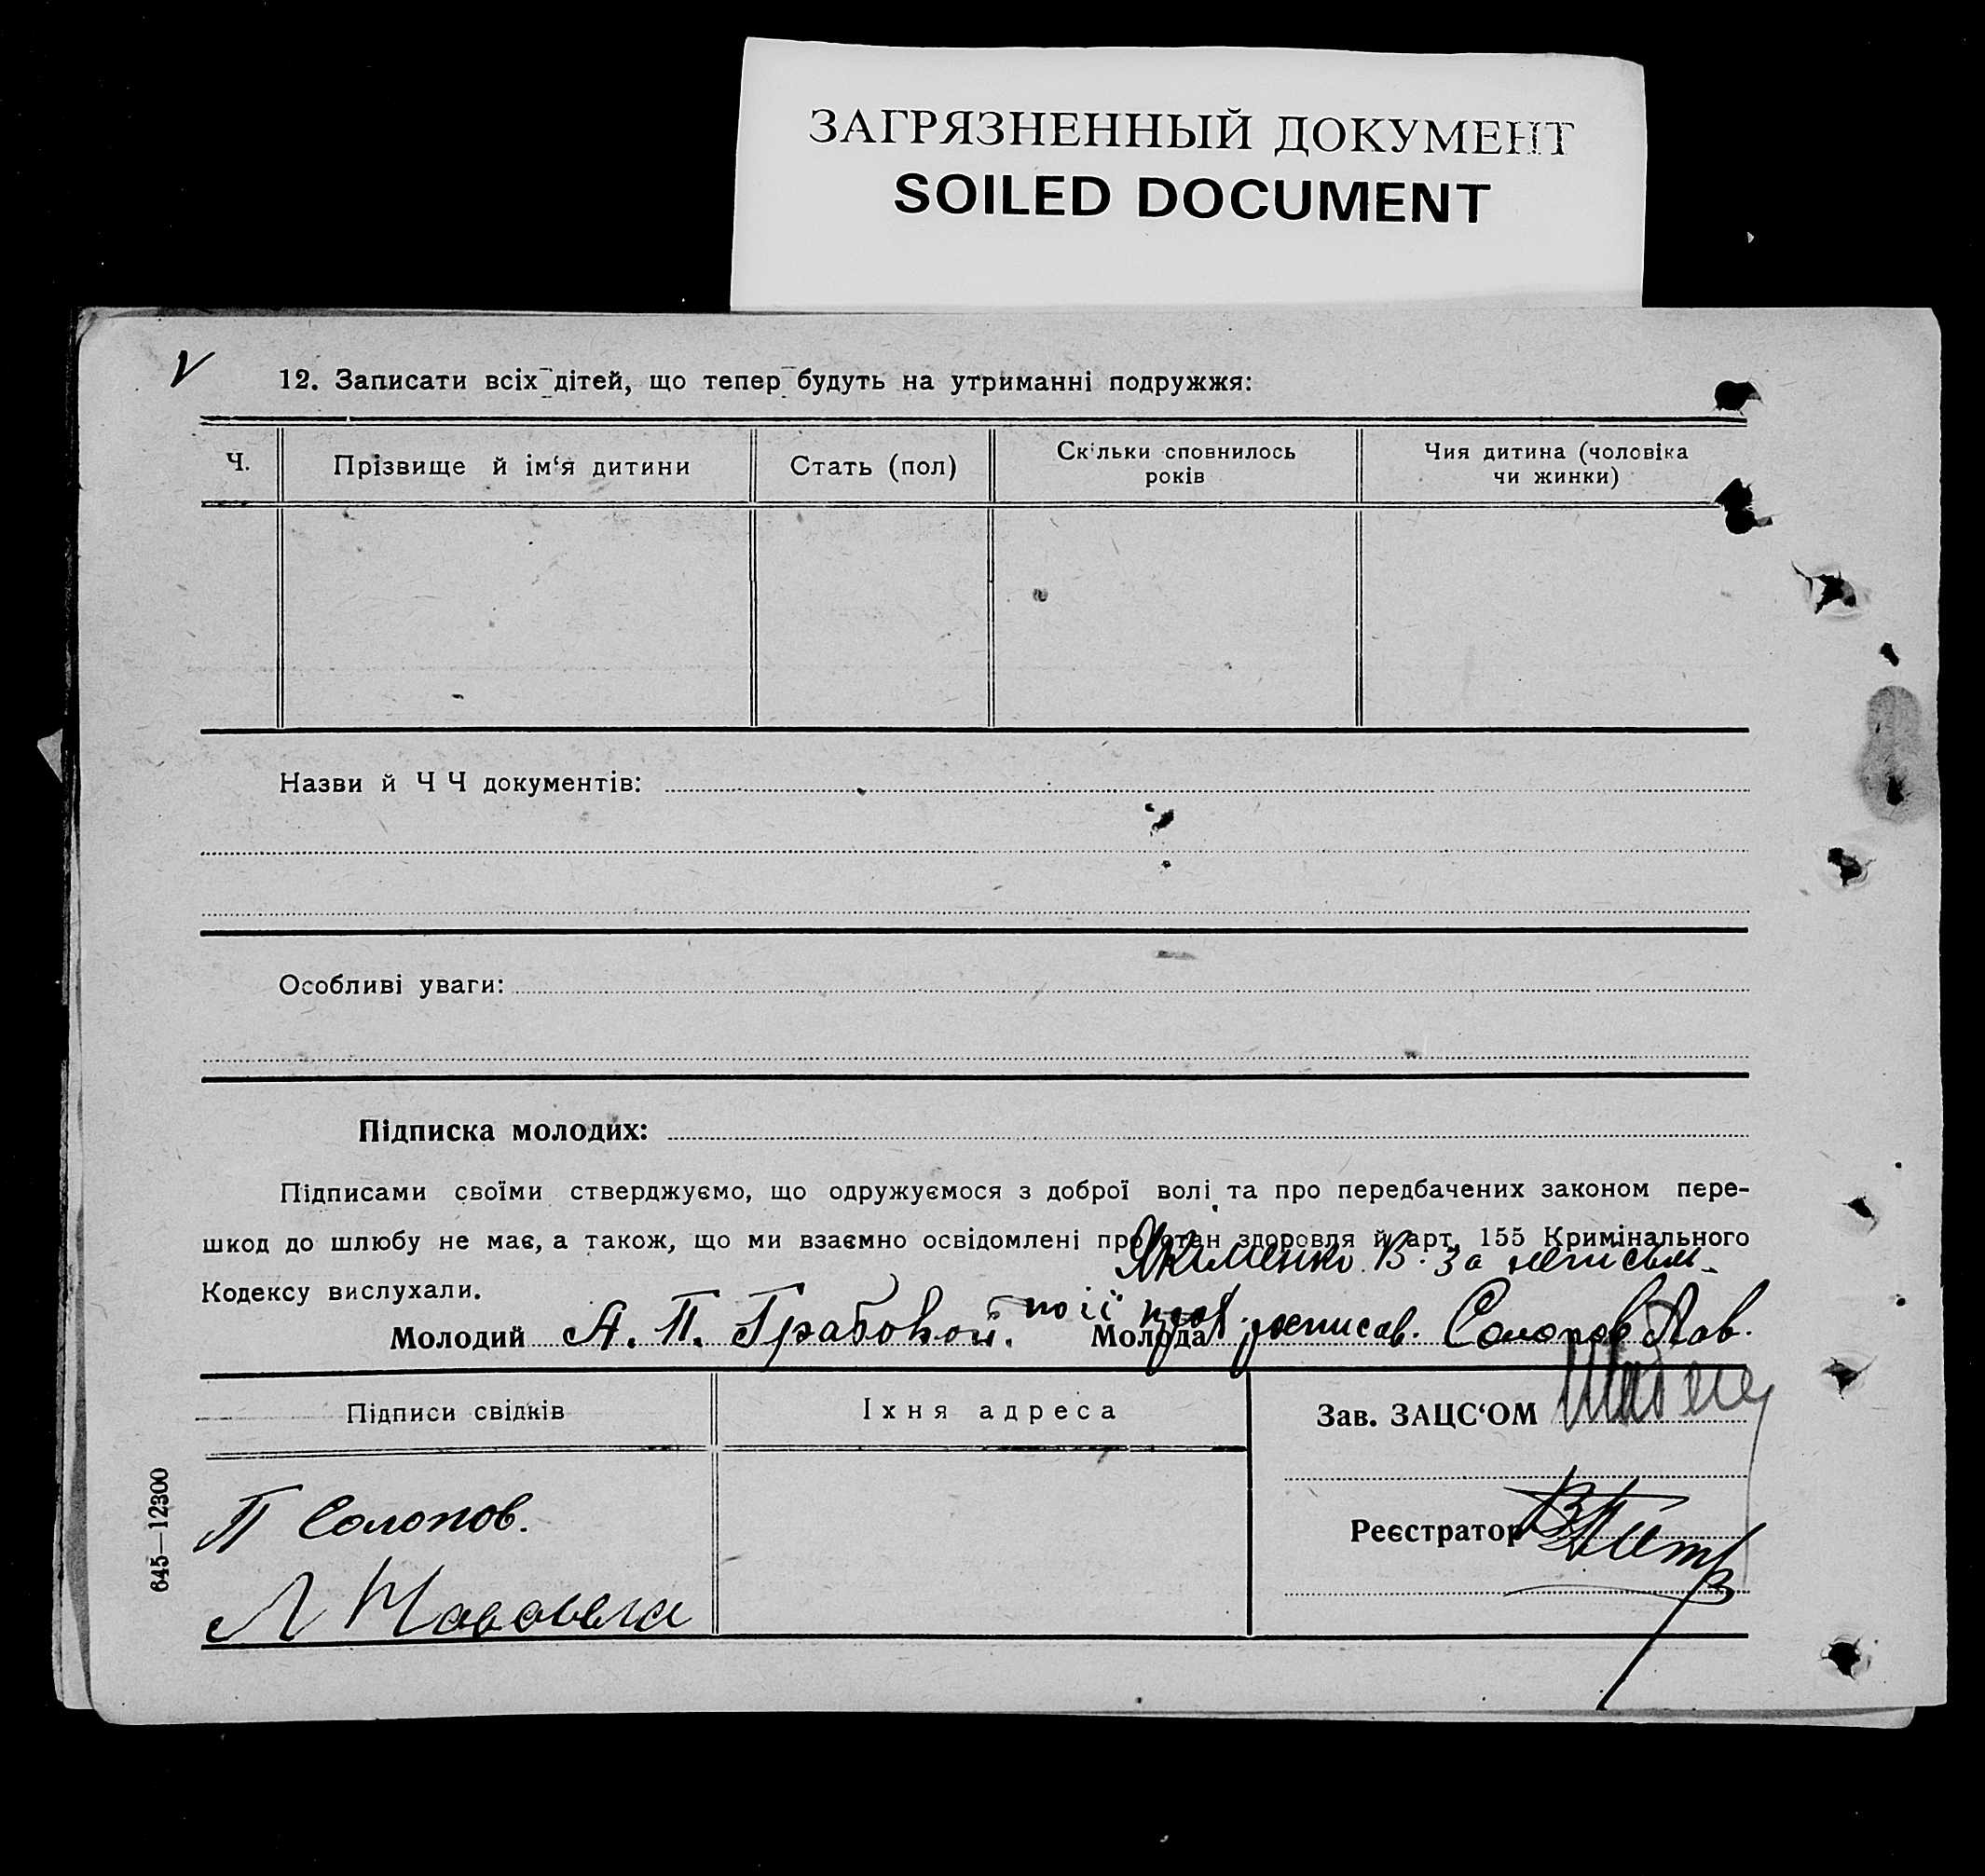 ЗАГРЯЗНЕННЫЙ ДОКУМЕНТ
SOILED DOCUMENT
V
12. Записати всіх дітей, що тепер будуть на утриманні подружжя:
Ч.
Прізвище й ім‘я дитини
Стать (пол)
Скільки сповнилось
років
Чия дитина (чоловіка
чи жинки)
Назви й Ч Ч документів:
Особливі уваги:
Підписка молодих:
Підписами своїми стверджуємо, що одружуємося з доброї волі та про передбачених законом пере-
шкод до шлюбу не має, а також, що ми взаємно освідомлені про стан здоровля й арт. 155 Кримінального
Якименко В. за неписьм.
Кодексу вислухали.
по її
Молодий А. П. Грабовой. Молода росписав. Солопов Пав.
Підписи свідків
Їхня адреса
Зав. ЗАЦС‘ОМ
П Солопов.
Реєстратор
Л
645—12300